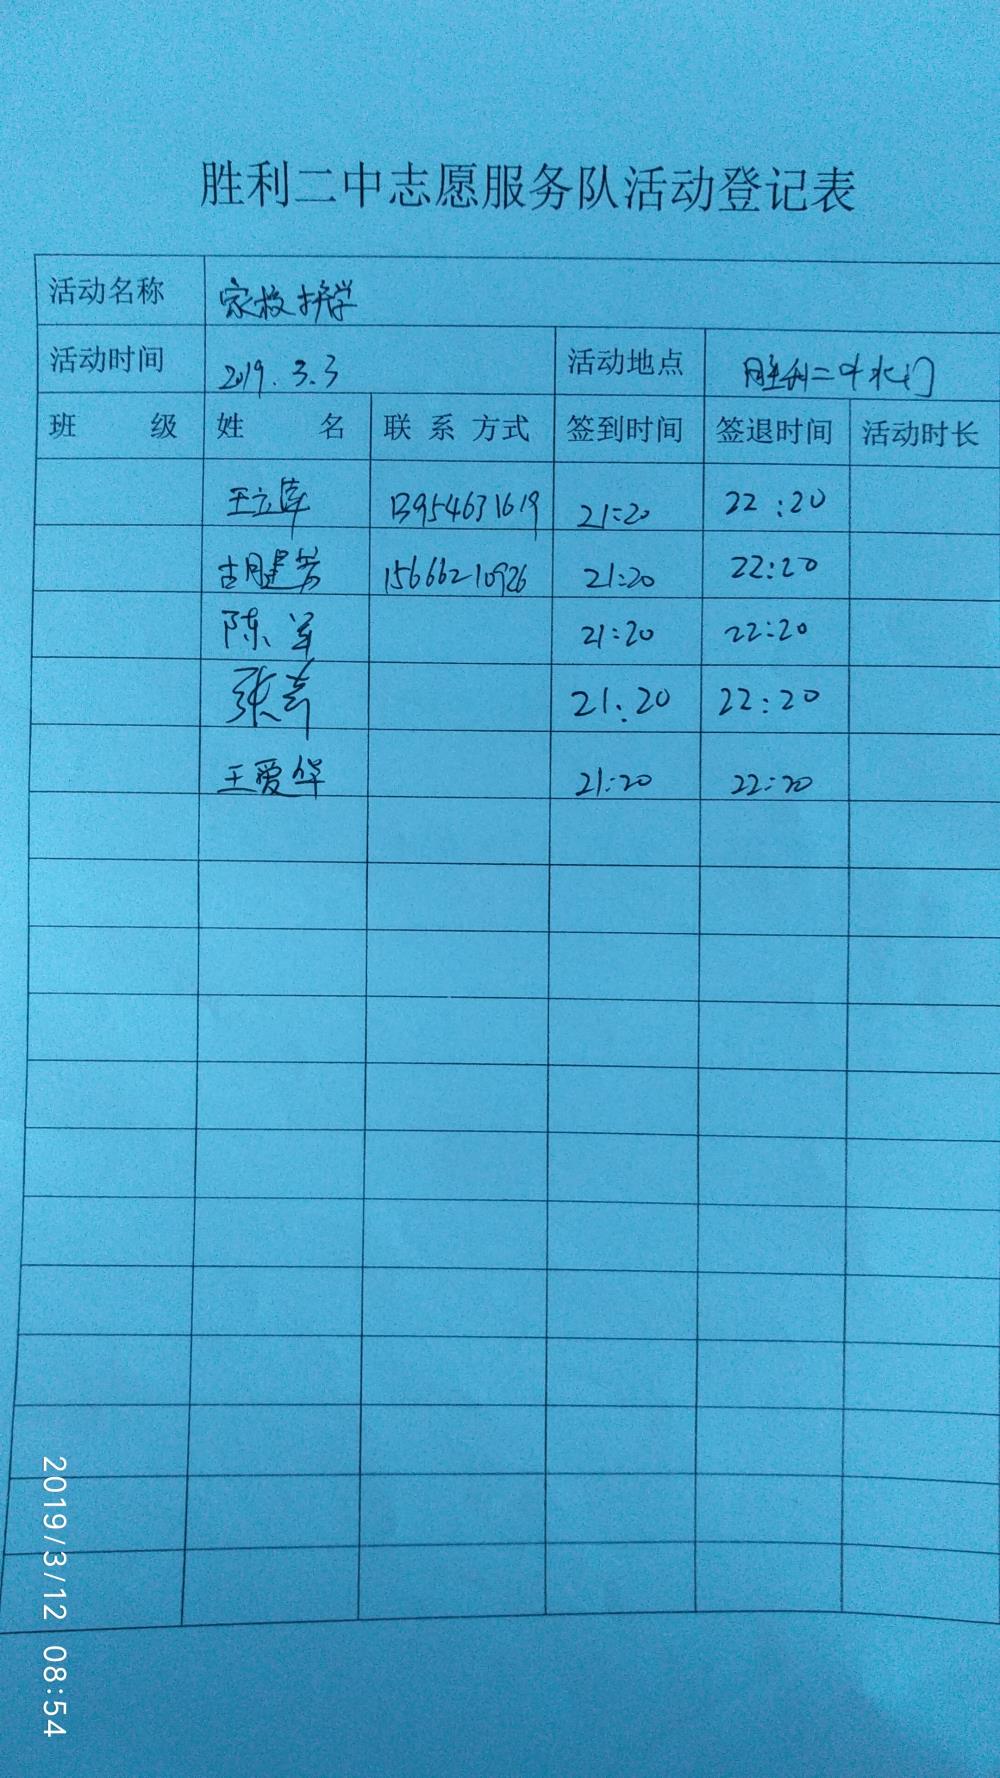 胜利二中志愿服务队活动登记表
活动名称 家校护学
活动时间 2019.3.3 活动地点 胜利二中北门
班 级 姓 名 联系方式 签到时间 签退时间 活动时长
王立萍 13954631619 21:20 22:20
15666210926 21:20 22:20
陈军 21:20 22:20
张 21:20 22:20
王爱华 21:20 22:20
2019/3/12 08:54